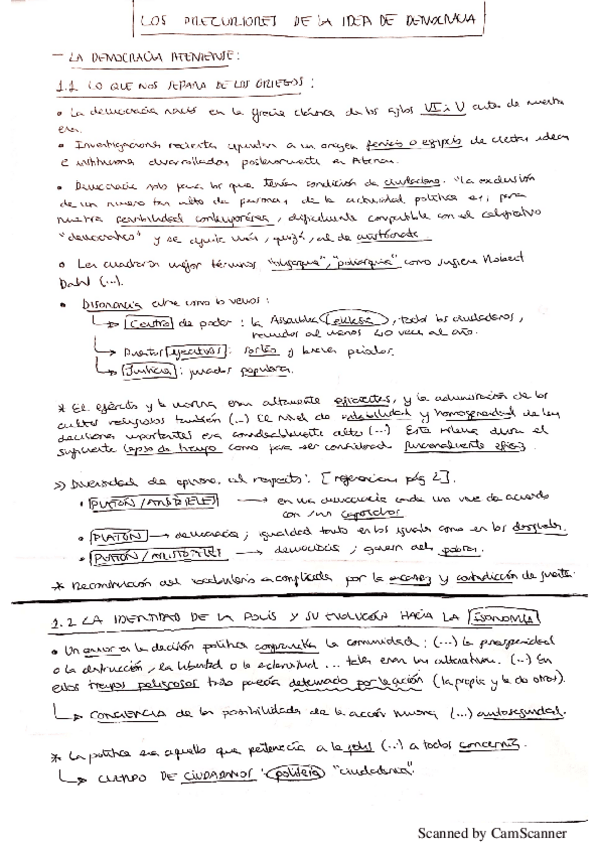 LOS PRECURSORES DE LA IDEA DE DEMOCRACIA
- LA DEMOCRACIA ATENIENSE:
1.1 LO QUE NOS SEPARA DE LOS GRIEGOS:
• La democracia nació en la Grecia clásica de los siglos VI y V antes de nuestra
era.
• Investigaciones recientes apuntan a un origen fenicio o egipcio de ciertas ideas
e instituciones desarrolladas posteriormente en Atenas.
• Democracia solo para los que tenían condición de ciudadano. "La exclusión
de un número tan alto de personas de la actividad política es, para
nuestra sensibilidad contemporánea, difícilmente compatible con el calificativo
"democrático" y se ajusta más, quizá, al de aristócrata
• Les cuadraría mejor términos "oligarquía", "poliarquía" como sugiere Robert
Dahl (...).
• Disonancia entre como lo vemos:
Centro de poder: la Asamblea ekklesia, todos los ciudadanos,
reunidos al menos 40 veces al año.
Puestos ejecutivos: sorteo y breves periodos.
Justicia: jurados populares.
* El ejército y la marina eran altamente eficientes, y la administración de los
cultos religiosos también (...) El nivel de estabilidad y homogeneidad de las
decisiones importantes era considerablemente alto (...) Este sistema duró el
suficiente lapso de tiempo como para ser considerado funcionalmente eficaz.
>> Diversidad de opinión al respecto: [referencias pág 2].
• PLATÓN / ARISTÓTELES → en una democracia cada uno vive de acuerdo
con sus
• PLATÓN → democracia; igualdad tanto en los iguales como en los desiguales.
• PLATÓN / ARISTÓTELES → democracia; gobierno de los pobres.
* Reconstrucción del vocabulario es complicada por la escasez y contradicción de fuentes.
1.2 LA IDENTIDAD DE LA POLIS Y SU EVOLUCIÓN HACIA LA ISONOMÍA
• Un error en la decisión política comprometía la comunidad: (...) la prosperidad
o la destrucción, la libertad o la esclavitud ... tales eran las alternativas. (...) En
estos tiempos peligrosos todo parecía determinado por la acción (la propia y la de otros).
CONCIENCIA de las posibilidades de la acción humana (...) autoseguridad.
* La política era aquello que pertenecía a la polis (...) a todos concernía.
CUERPO DE CIUDADANOS: politeia "ciudadanía".
Scanned by CamScanner